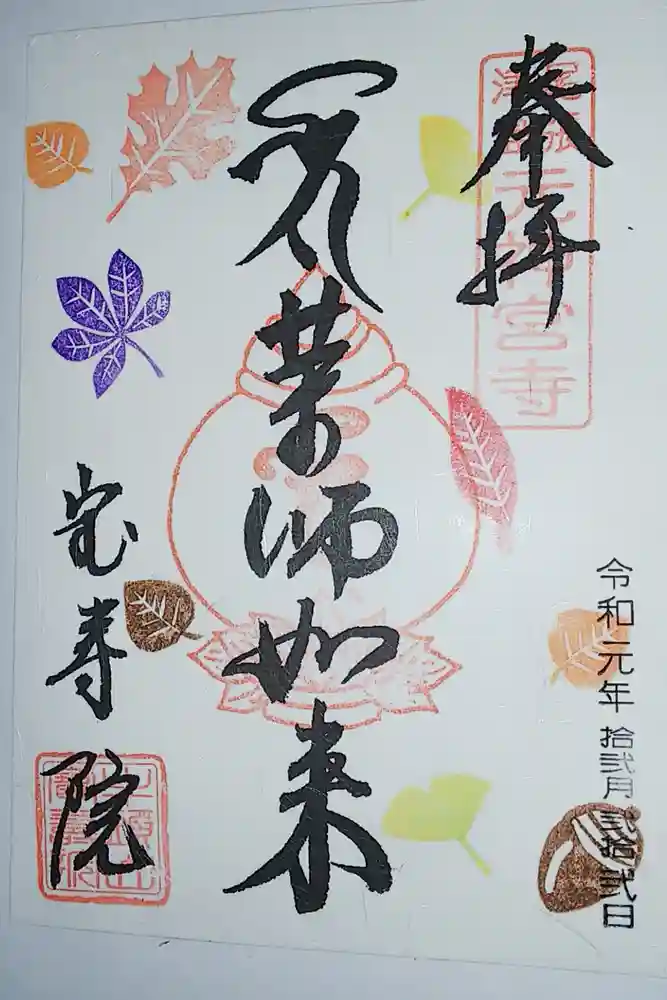 奉拝
元神宮寺
令和元年拾弐月弐拾弐日
薬師如来
宝寿院